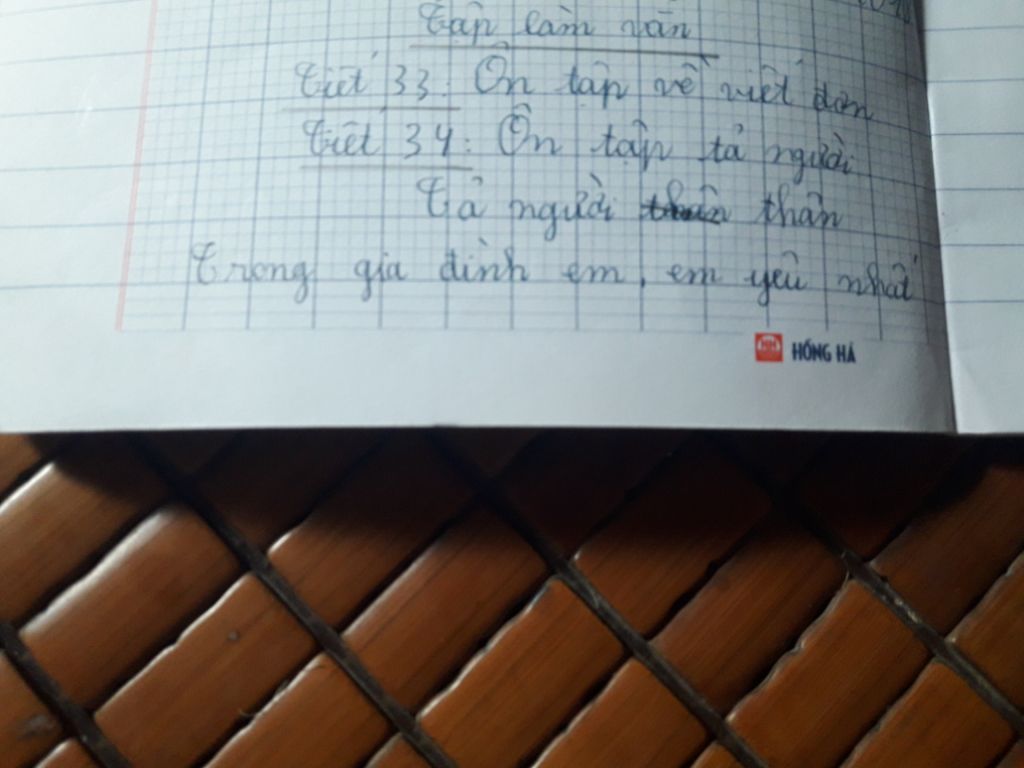 Tập làm văn
Tiết 33: Ôn tập về viết đơn
Tiết 34: Ôn tập tả người
Tả người thân
Trong gia đình em, em yêu nhất
HỒNG HÀ